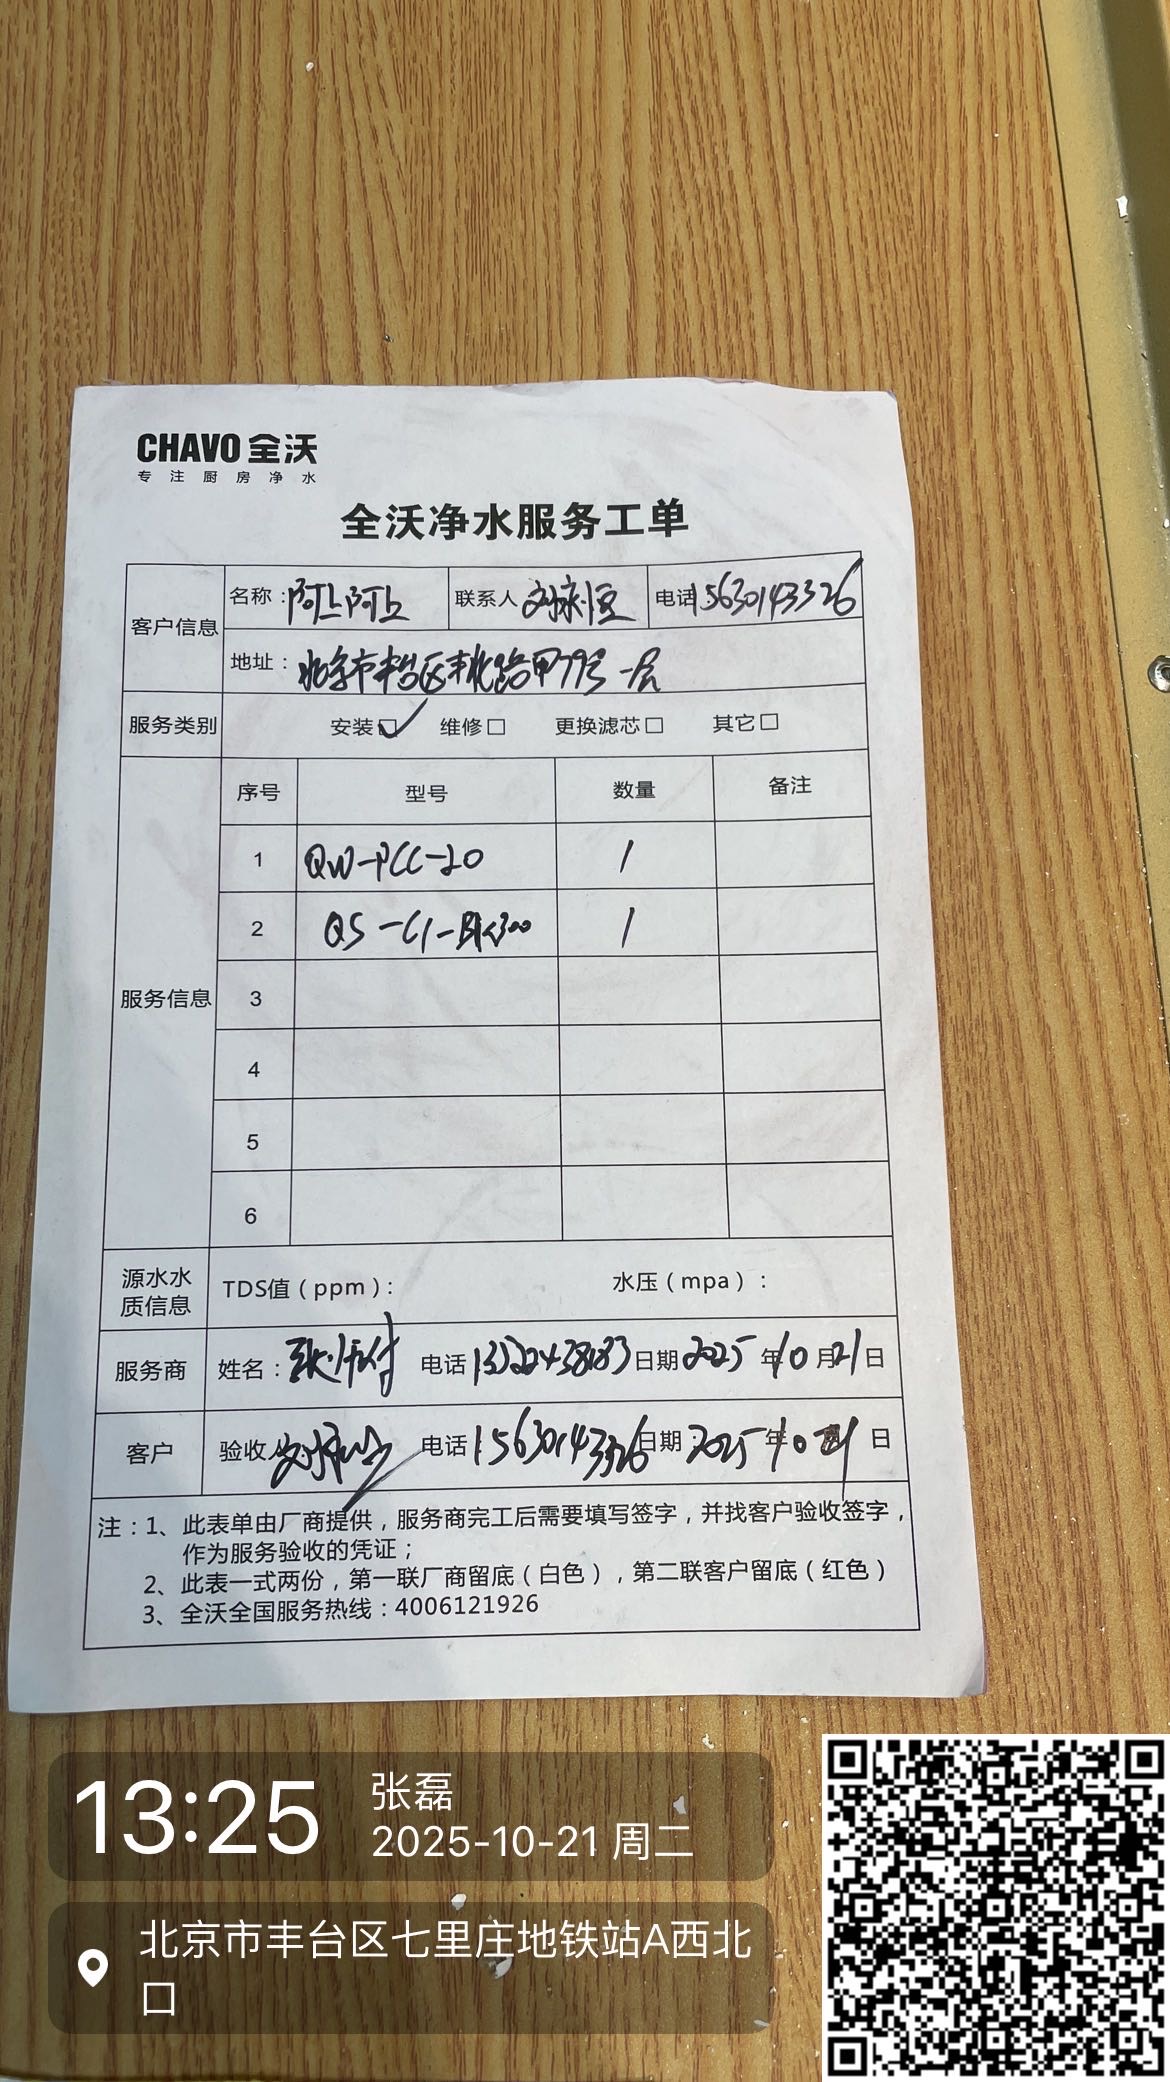 CHAVO 全沃
专注厨房净水
全沃净水服务工单
客户信息 名称：阿上阿上 联系人 电话 15630143326
地址：北京市丰台区丰北路甲79号一层
服务类别 安装☑ 维修□ 更换滤芯□ 其它□
服务信息
序号 型号 数量 备注
1 QW-PCC-20 1
2 QS-C1-BK300 1
3
4
5
6
源水水质信息 TDS值（ppm）： 水压（mpa）：
服务商 姓名： 电话 13522438183 日期 2025 年 10 月 21 日
客户 验收人 电话 15630143326 日期：2025 年 10 21 日
注：1、此表单由厂商提供，服务商完工后需要填写签字，并找客户验收签字，
作为服务验收的凭证；
2、此表一式两份，第一联厂商留底（白色），第二联客户留底（红色）
3、全沃全国服务热线：4006121926
13:25
张磊
2025-10-21 周二
北京市丰台区七里庄地铁站A西北
口